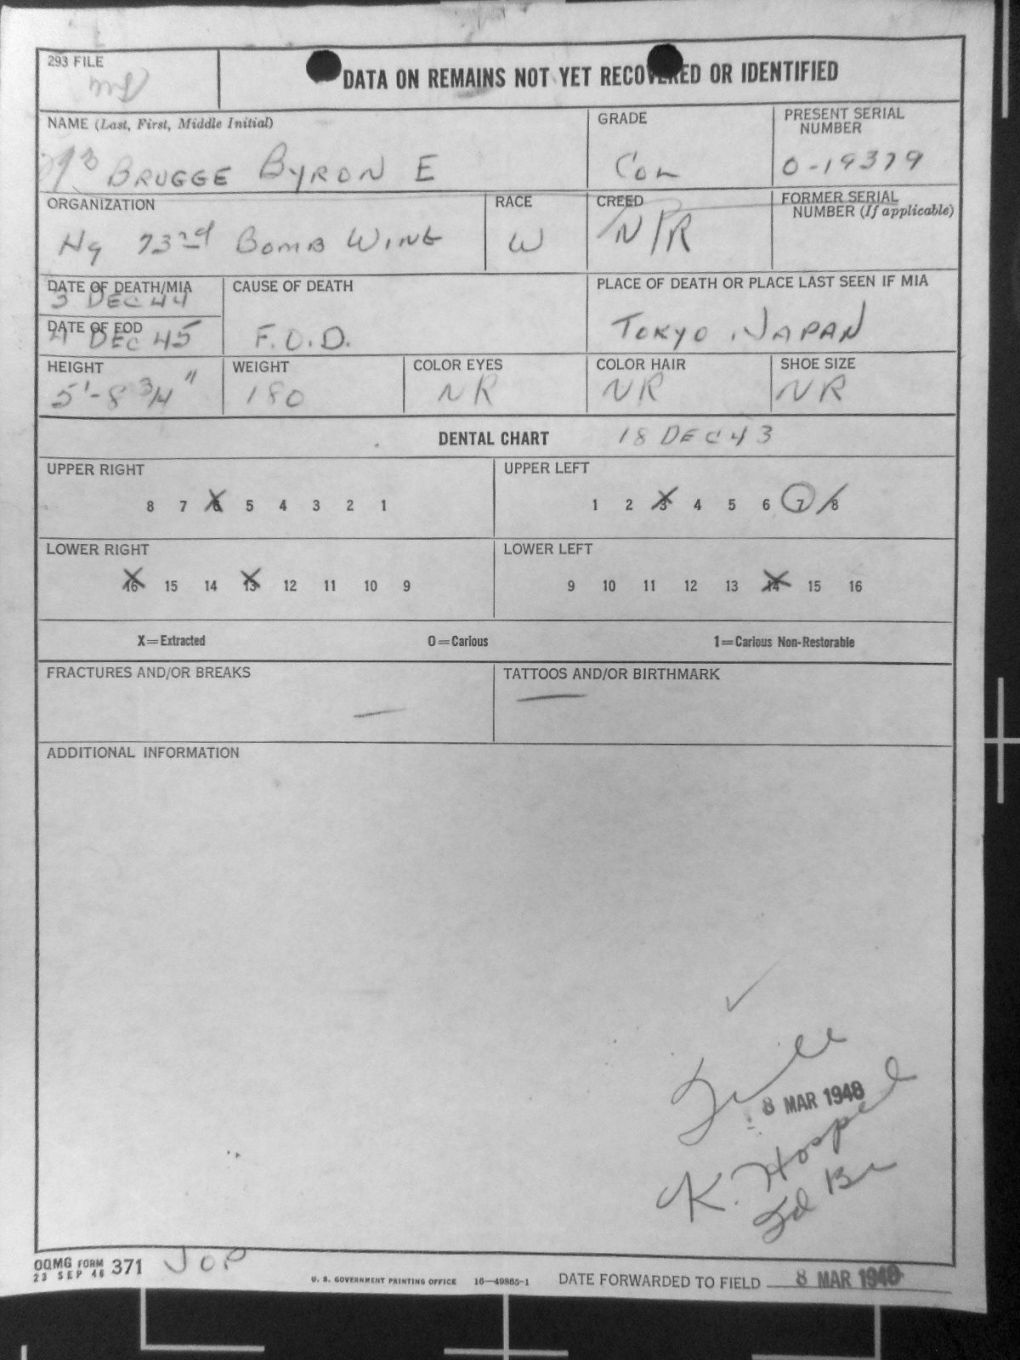 293 FILE
DATA ON REMAINS NOT YET RECOVERED OR IDENTIFIED
NAME (Last, First, Middle Initial)
GRADE
PRESENT SERIAL
NUMBER
BRUGGE BYRON E
COL
O-19379
ORGANIZATION
RACE
CREED
FORMER SERIAL
NUMBER (If applicable)
Hq 73rd BOMB WING
W
N/R
DATE OF DEATH/MIA
3 DEC 44
CAUSE OF DEATH
PLACE OF DEATH OR PLACE LAST SEEN IF MIA
DATE OF EOD
4 DEC 45
F.O.D.
TOKYO JAPAN
HEIGHT
WEIGHT
COLOR EYES
COLOR HAIR
SHOE SIZE
5'-8 3/4"
180
NR
NR
NR
DENTAL CHART 18 DEC 43
UPPER RIGHT
UPPER LEFT
8 7 6 5 4 3 2 1
1 2 3 4 5 6 7 8
LOWER RIGHT
LOWER LEFT
16 15 14 13 12 11 10 9
9 10 11 12 13 14 15 16
X=Extracted
O=Carious
1=Carious Non-Restorable
FRACTURES AND/OR BREAKS
TATTOOS AND/OR BIRTHMARK
ADDITIONAL INFORMATION
File
8 MAR 1948
K. Hospel
Id Br
OQMG FORM 371
23 SEP 46
JOP
U. S. GOVERNMENT PRINTING OFFICE 16—49865-1
DATE FORWARDED TO FIELD 8 MAR 1948